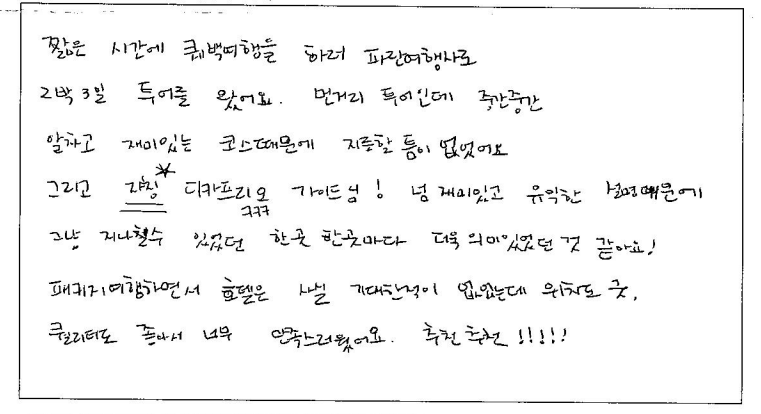 짧은 시간에 퀘백여행을 하러 파란여행사로
2박 3일 투어를 왔어요. 먼거리 투어인데 중간중간
알차고 재미있는 코스때문에 지루할 틈이 없었어요
그리고 자칭 디카프리오 가이드님! 넘 재미있고 유익한 설명때문에
ㅋㅋㅋ
그냥 지나칠수 있었던 한곳 한곳마다 더욱 의미있었던 것 같아요!
패키지여행하면서 호텔은 사실 기대한적이 없었는데 위치도 굿,
퀄리티도 좋아서 너무 만족스러웠어요. 추천추천 !!!!!